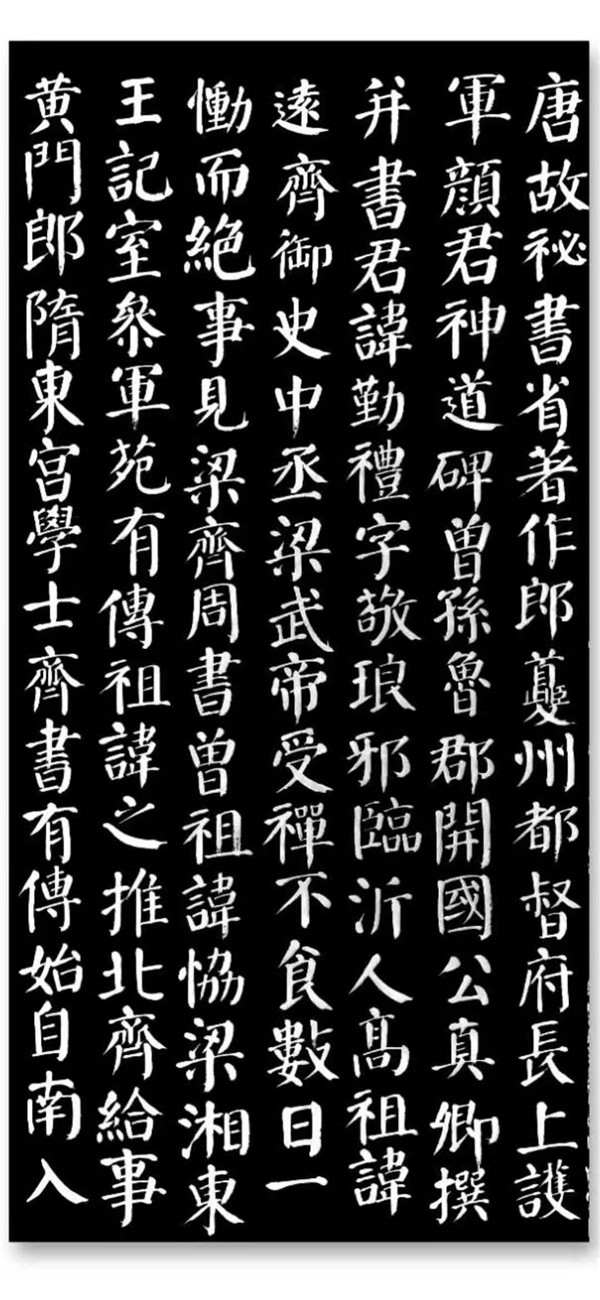 唐故祕書省著作郎夔州都督府長上護
軍顏君神道碑曾孫魯郡開國公真卿撰
并書君諱勤禮字敬琅邪臨沂人高祖諱
遠齊御史中丞梁武帝受禪不食數日一
慟而絕事見梁齊周書曾祖諱協梁湘東
王記室參軍苑有傳祖諱之推北齊給事
黃門郎隋東宮學士齊書有傳始自南入